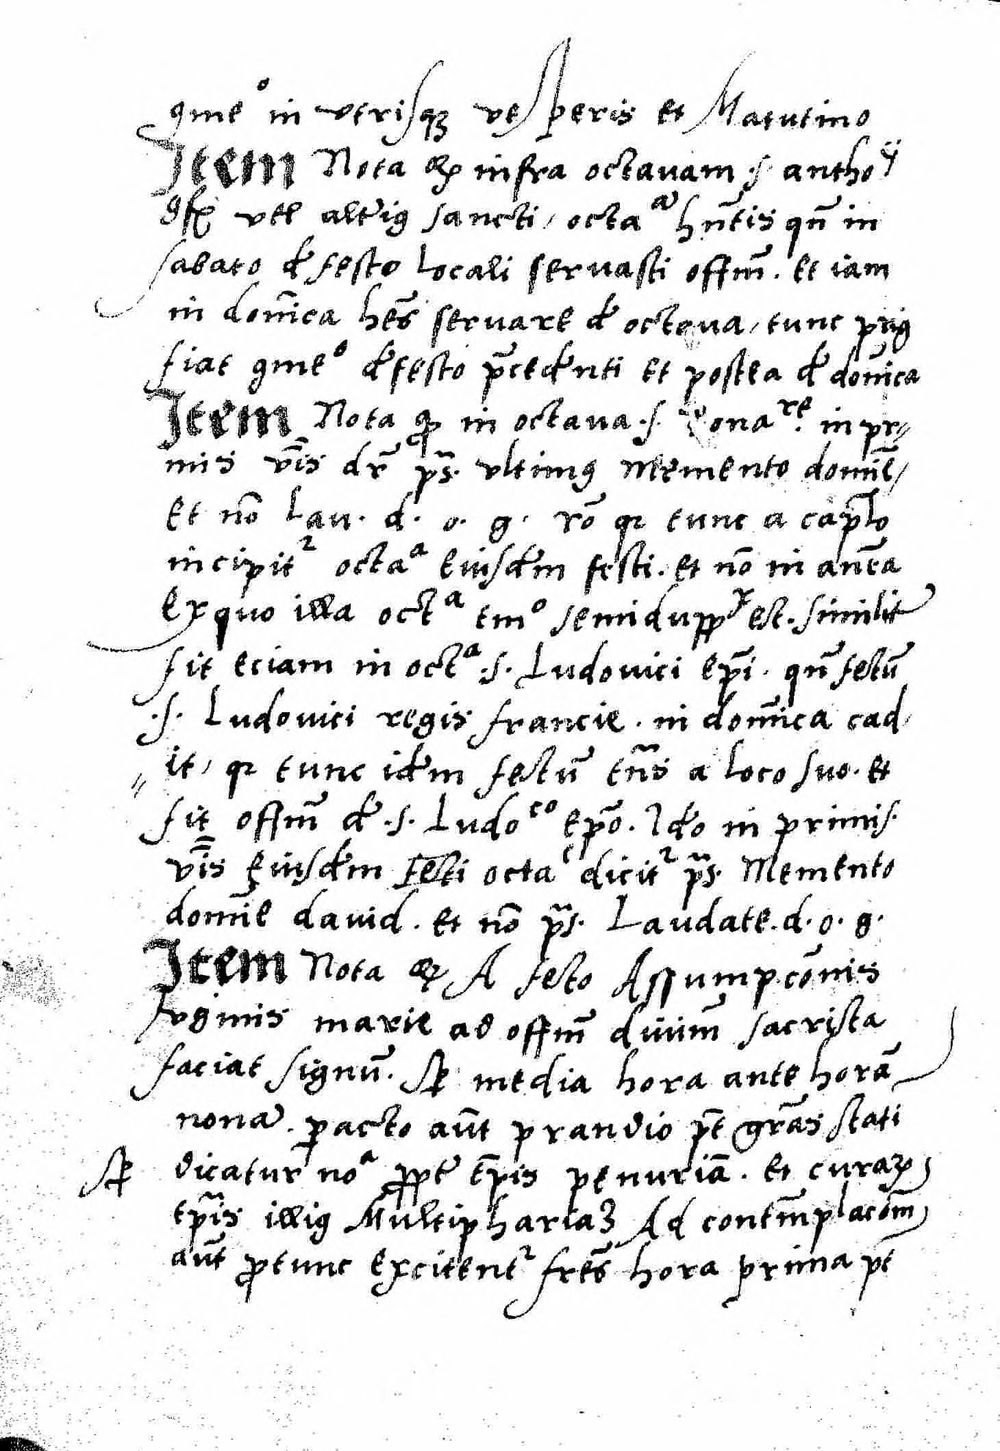 9me° in vtrisqꝫ vesperis et Matutino
Item Nota qꝫ infra octauam .s. anthoÿ
vel alteriꝰ sancti, octaᵃ hn̄tis qn̄ in
sabato de festo locali seruasti offm̄. et iam
in domīca hēs seruare de octaua, tunc priꝰ
fiat 9me° de festo p̄cedenti et postea de domīca
Item Nota ꝙ in octaua .s. Leonaʳᵉ. in pri-
mis vīs dr̄ ps̄. vltimꝰ Memento domīe,
et nō Lau. d. o. g. rō qꝛ tunc a capłо
incipitᵗ octaᵃ eiusdem festi. et nō in anēa
Ex quo illa octᵃ tm° semiduppˣ est. similit
fit eciam in octᵃ .s. Ludouici ep̄i. qn̄ festū
.s. Ludouici regis francie. in domīca cad-
it, qꝛ tunc idem festū tn̄s a loco suo. et
fit offm̄ de .s. Ludoᶜᵒ ep̄o. Ideo in primis.
vīs eiusdem festi octaᵉ dicitᵗ ps̄. Memento
domīe dauid. et nō ps̄. Laudate. d. o. g.
Item Nota qꝫ A festo Assumpcōnis
virginis marie ad offm̄ diuinū sacrista
faciat signū. Sꝑ media hora ante horā
nonā. ꝑacto aūt prandio pꝰt grās stati
Sꝑ dicatur noᵃ ꝓpt tp̄is penuriā. et curaꝝ
tp̄is illiꝰ Multiphariaꝫ Ad contm̄placōm̄
aūt ꝓtunc excitentᵗ frēs hora prima pt̄